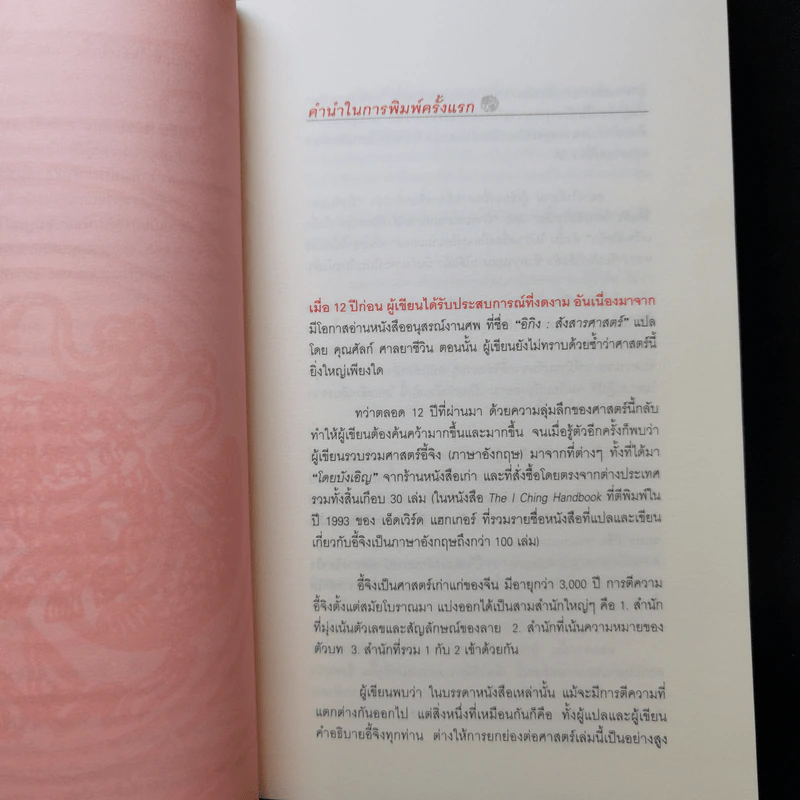 คำนำในการพิมพ์ครั้งแรก
เมื่อ 12 ปีก่อน ผู้เขียนได้รับประสบการณ์ที่งดงาม อันเนื่องมาจาก
มีโอกาสอ่านหนังสืออนุสรณ์งานศพ ที่ชื่อ “อิกิง : สังสารศาสตร์” แปล
โดย คุณศัลก์ ศาลยาชีวิน ตอนนั้น ผู้เขียนยังไม่ทราบด้วยซ้ำว่าศาสตร์นี้
ยิ่งใหญ่เพียงใด
ทว่าตลอด 12 ปีที่ผ่านมา ด้วยความลุ่มลึกของศาสตร์นี้กลับ
ทำให้ผู้เขียนต้องค้นคว้ามากขึ้นและมากขึ้น จนเมื่อรู้ตัวอีกครั้งก็พบว่า
ผู้เขียนรวบรวมศาสตร์อี้จิง (ภาษาอังกฤษ) มาจากที่ต่างๆ ทั้งที่ได้มา
“โดยบังเอิญ” จากร้านหนังสือเก่า และที่สั่งซื้อโดยตรงจากต่างประเทศ
รวมทั้งสิ้นเกือบ 30 เล่ม (ในหนังสือ The I Ching Handbook ที่ตีพิมพ์ใน
ปี 1993 ของ เอ็ดเวิร์ด แฮกเกอร์ ที่รวมรายชื่อหนังสือที่แปลและเขียน
เกี่ยวกับอี้จิงเป็นภาษาอังกฤษถึงกว่า 100 เล่ม)
อี้จิงเป็นศาสตร์เก่าแก่ของจีน มีอายุกว่า 3,000 ปี การตีความ
อี้จิงตั้งแต่สมัยโบราณมา แบ่งออกได้เป็นสามสำนักใหญ่ๆ คือ 1. สำนัก
ที่มุ่งเน้นตัวเลขและสัญลักษณ์ของลาย 2. สำนักที่เน้นความหมายของ
ตัวบท 3. สำนักที่รวม 1 กับ 2 เข้าด้วยกัน
ผู้เขียนพบว่า ในบรรดาหนังสือเหล่านั้น แม้จะมีการตีความที่
แตกต่างกันออกไป แต่สิ่งหนึ่งที่เหมือนกันก็คือ ทั้งผู้แปลและผู้เขียน
คำอธิบายอี้จิงทุกท่าน ต่างให้การยกย่องต่อศาสตร์เล่มนี้เป็นอย่างสูง